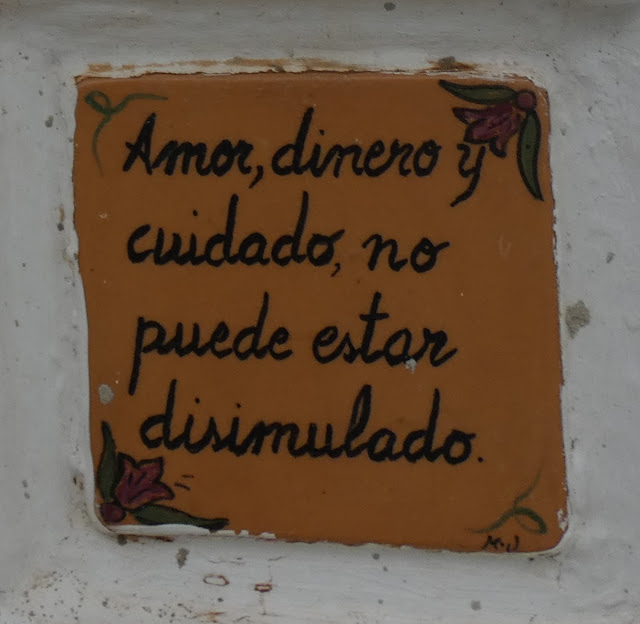 Amor, dinero y
cuidado, no
puede estar
disimulado.
M.J